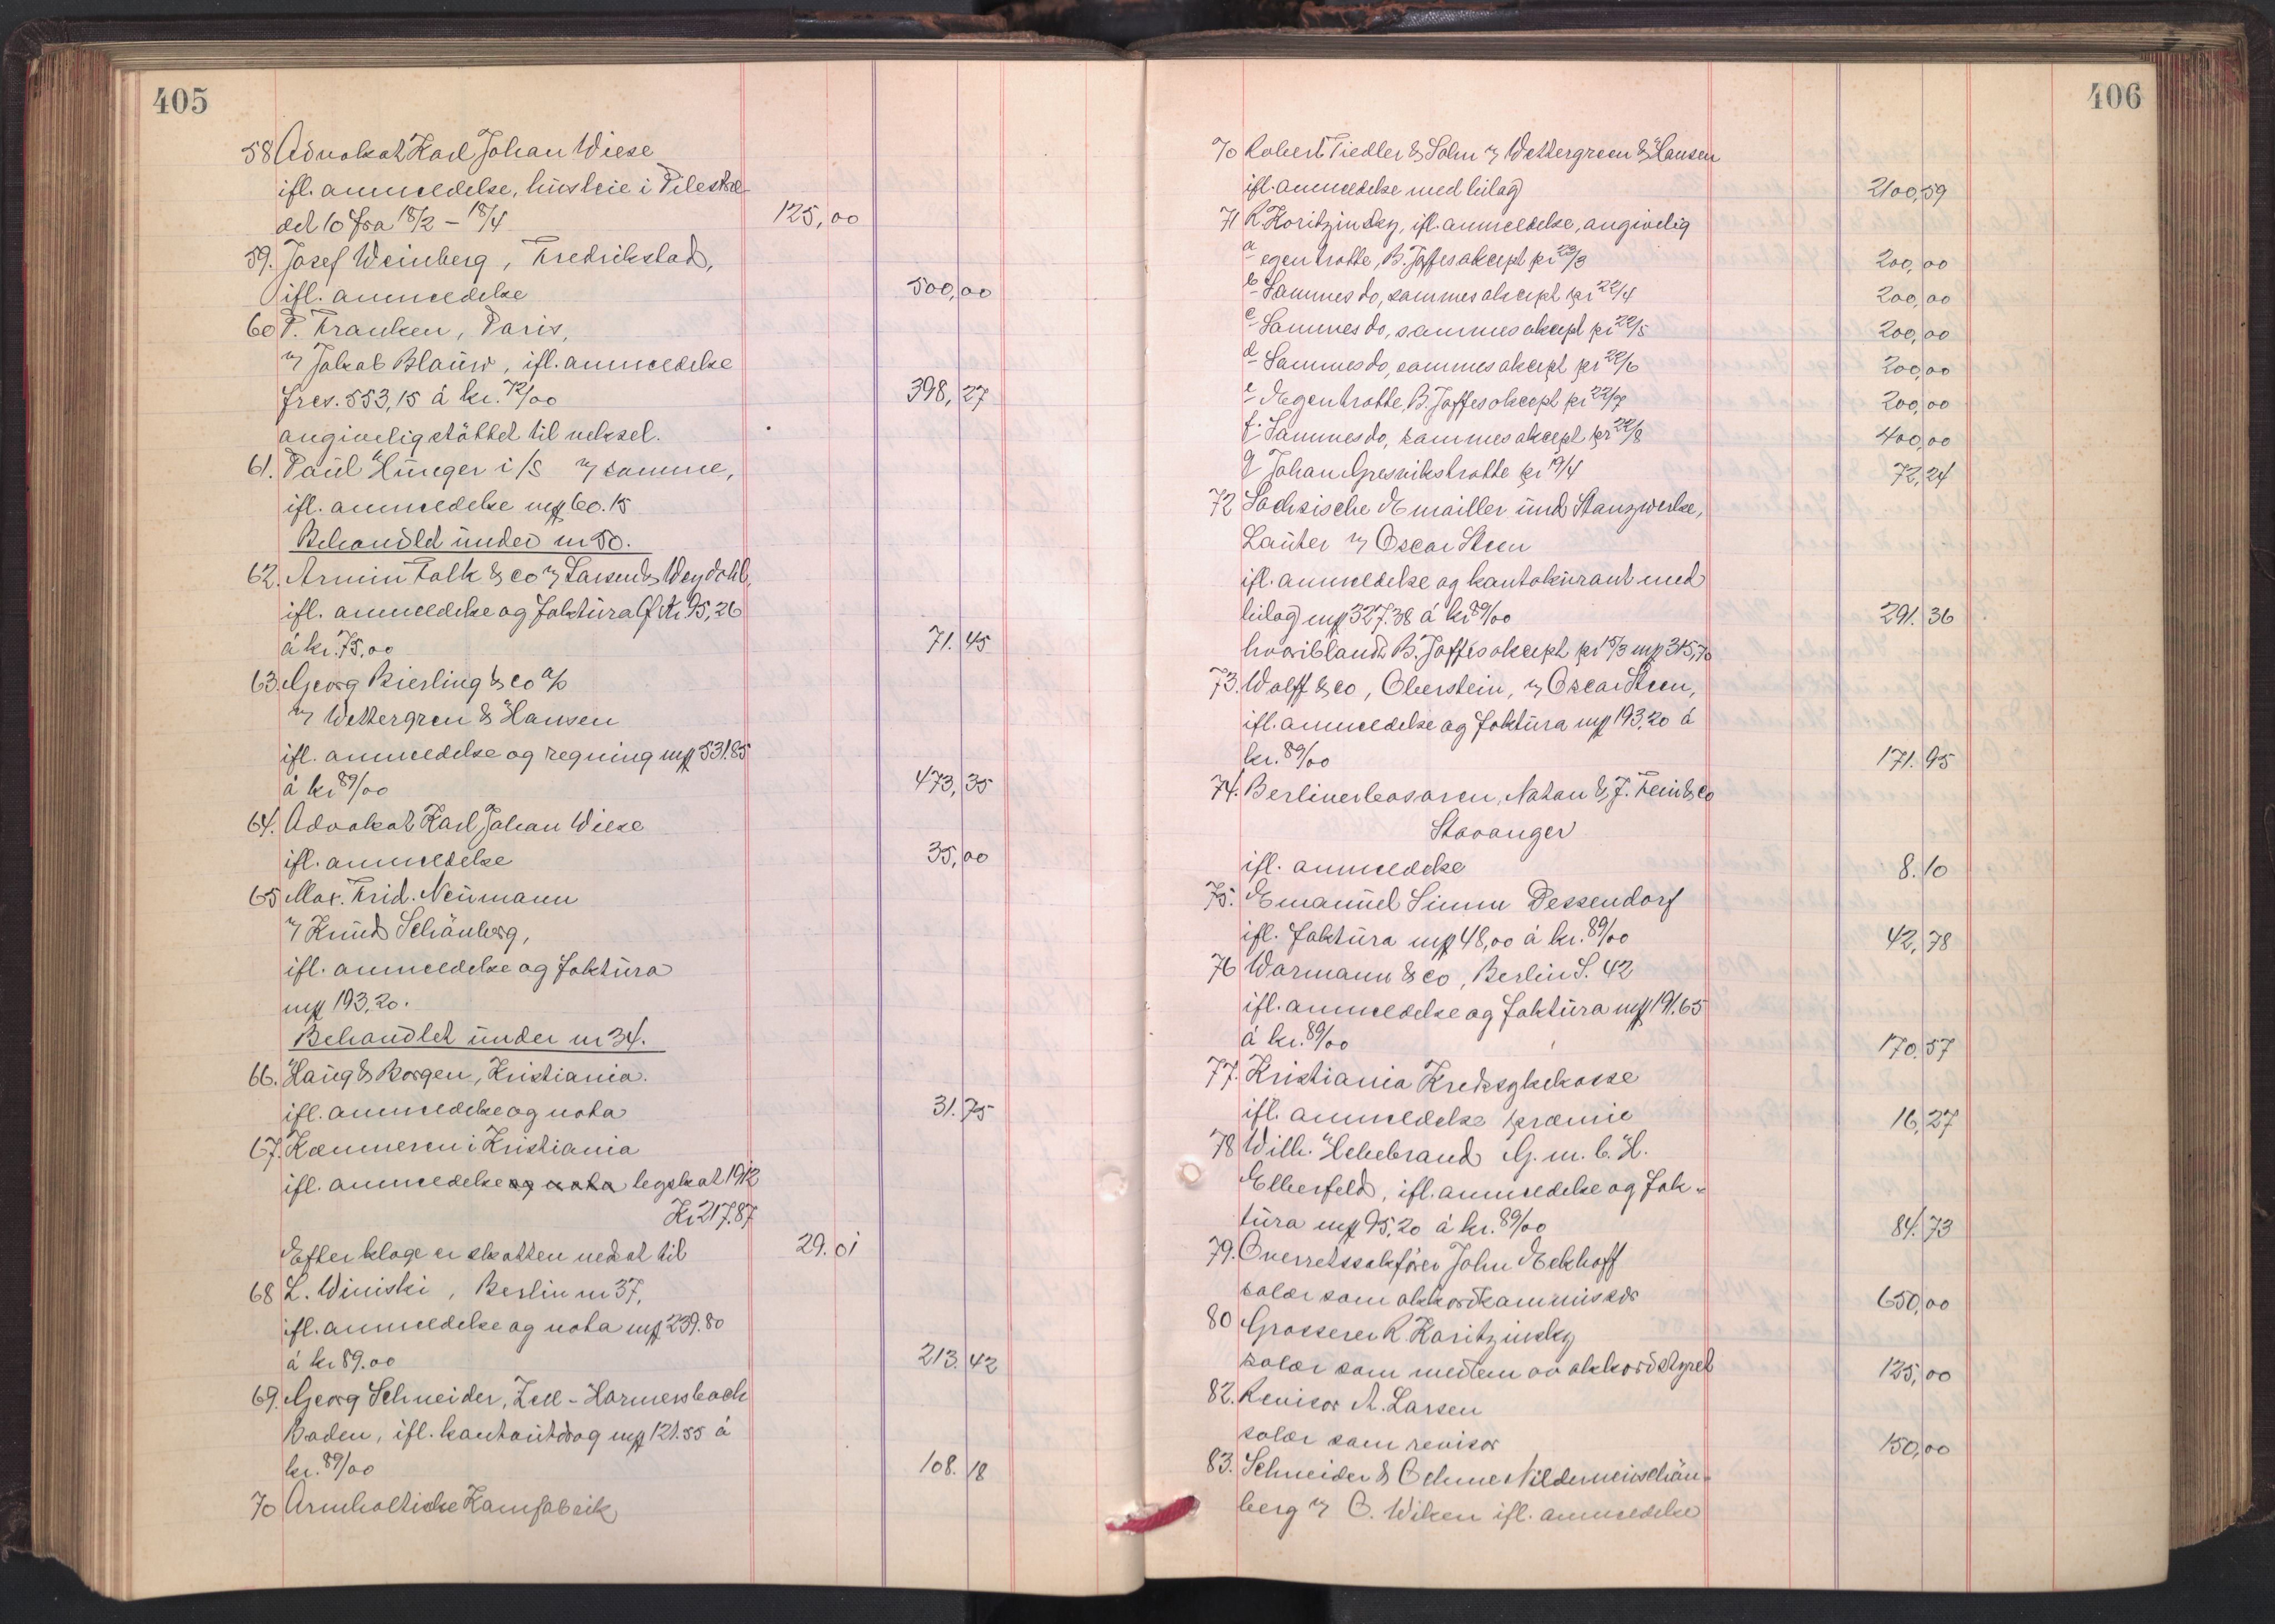 405
58 Advokat Karl Johan Wiese
ifl. anmeldelse, husleie i Pilestræ-
det 10 fra 18/2 – 18/4 125,00
59. Josef Weinberg, Fredrikstad,
ifl. anmeldelse 500,00
60 P. Franken, Paris,
v/ Jakob Blauw, ifl. anmeldelse
frcs. 553,15 á kr. 72/00 398,27
angivelig støttet til veksel.
61. Paul Hunger i/S v/ samme,
ifl. anmeldelse mk 60.15
Behandlet under nr 50.
62. Armin Falk & Co v/ Larsen & Weydahl
ifl. anmeldelse og faktura Kr. 95,26
á kr. 75.00 71.45
63. Georg Bierling & Co a/s
v/ Wettergren & Hansen
ifl. anmeldelse og regning mk 531.85
á kr 89/00 473,35
64. Advokat Karl Johan Wiese
ifl. anmeldelse 35,00
65 Max. Frid. Neumann
v/ Knud Schänberg,
ifl. anmeldelse og faktura
mk 193,20.
Behandlet under nr 34.
66. Haug & Borgen, Kristiania.
ifl. anmeldelse og nota 31.75
67. Kæmneren i Kristiania
ifl. anmeldelse og nota byskat 1912
Kr 217.87
Efter klage er skatten nedsat til 29.01
68 L. Winiski, Berlin nr 37,
ifl. anmeldelse og nota mk 239.80
á kr 89.00 213.42
69. Georg Schneider, Zell-Harmersbach
Baden, ifl. kontoutdrag mk 121.55 á
kr. 89/00 108.18
70 Armholtiske Kamfabrik
406
70 Robert Tiedler & Sohn v/ Wettergreen & Hansen
ifl. anmeldelse med bilag 2100,59
71 R. Koritzinsky, ifl. anmeldelse, angivelig
a egen tratte, B. Jaffes aksept pr 22/3 200,00
b Sammes do, sammes aksept pr 22/4 200,00
c Sammes do, sammes aksept pr 22/5 200,00
d Sammes do, sammes aksept pr 22/6 200,00
e Egen tratte, B. Jaffes aksept pr 22/7 200,00
f. Sammes do, sammes aksept pr 22/8 400,00
g Johan Gresvikstratte pr 19/4 72,24
72 Sachsische Emailler und Stanzwerke,
Lauter v/ Oscar Steen
ifl. anmeldelse og kontokurant med
bilag mk 327.38 á kr 89/00 291.36
hvoriblandt B. Jaffes aksept pr 15/3 mk 315,70
73. Wolff & Co, Oberstein, v/ Oscar Steen,
ifl. anmeldelse og faktura mk 193.20 á
kr. 89/00 171.95
74. Berlinerbasaren, Natan & J. Fein & Co
Stavanger
ifl. anmeldelse 8.10
75. Emanuel Simm Dessendorf
ifl. faktura mk 48,00 á kr. 89/00 42,78
76 Warmann & Co, Berlin S. 42
ifl. anmeldelse og faktura mk 191.65
á kr. 89/00 170.57
77. Kristiania Kredssykekasse
ifl. anmeldelse præmie 16,27
78 Willi. Hellebrand G. m. b. H.
Elberfeld, ifl. anmeldelse og fak-
tura mk 95,20 á kr. 89/00 84.73
79. Overretssakfører John Eckhoff
salær som akkordkommissær 650,00
80 Grosserer R. Koritzinsky
salær som medlem av akkordstyret 125,00
82. Revisor A. Larsen
salær som revisor 150,00
83. Schneider & Oehme Nildermeinschän-
berg v/ O. Wiken ifl. anmeldelse